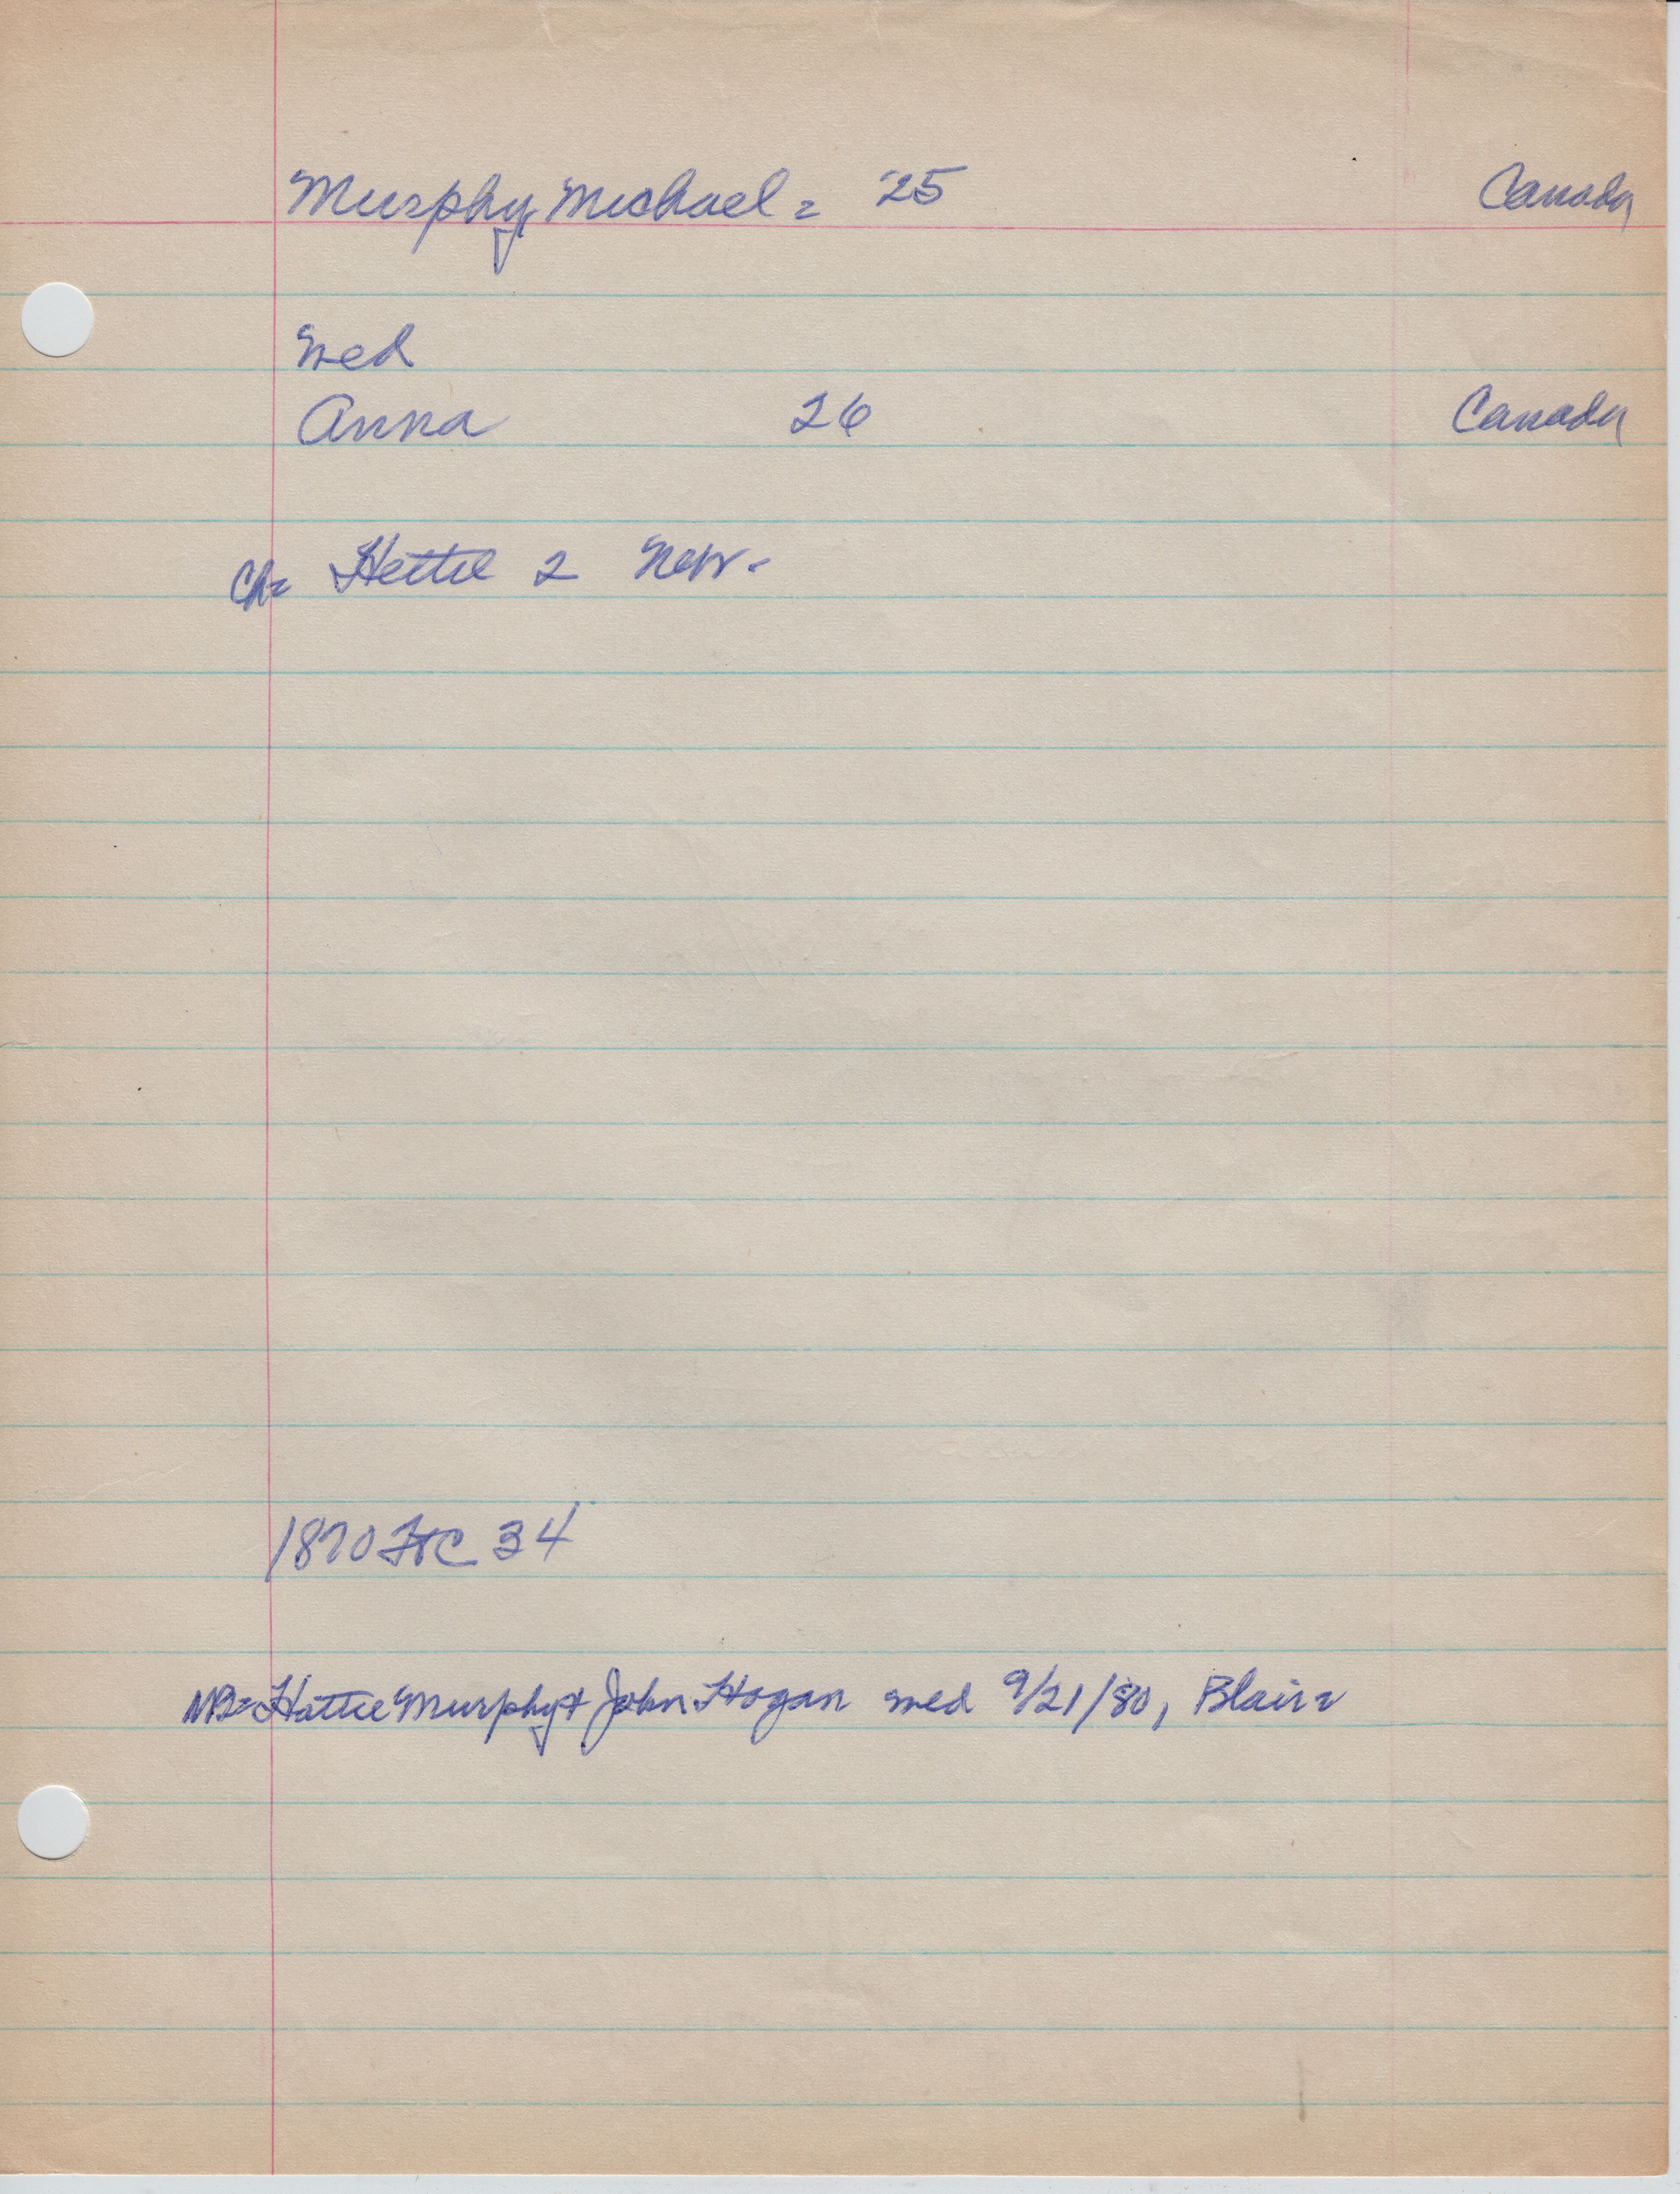 Murphy, Michael = 25 Canada
med
Anna 26 Canada
Ch= Hettie 2 Nebr.
1870 FtC 34
NB= Hattie Murphy + John Hogan med 9/21/80, Blair=